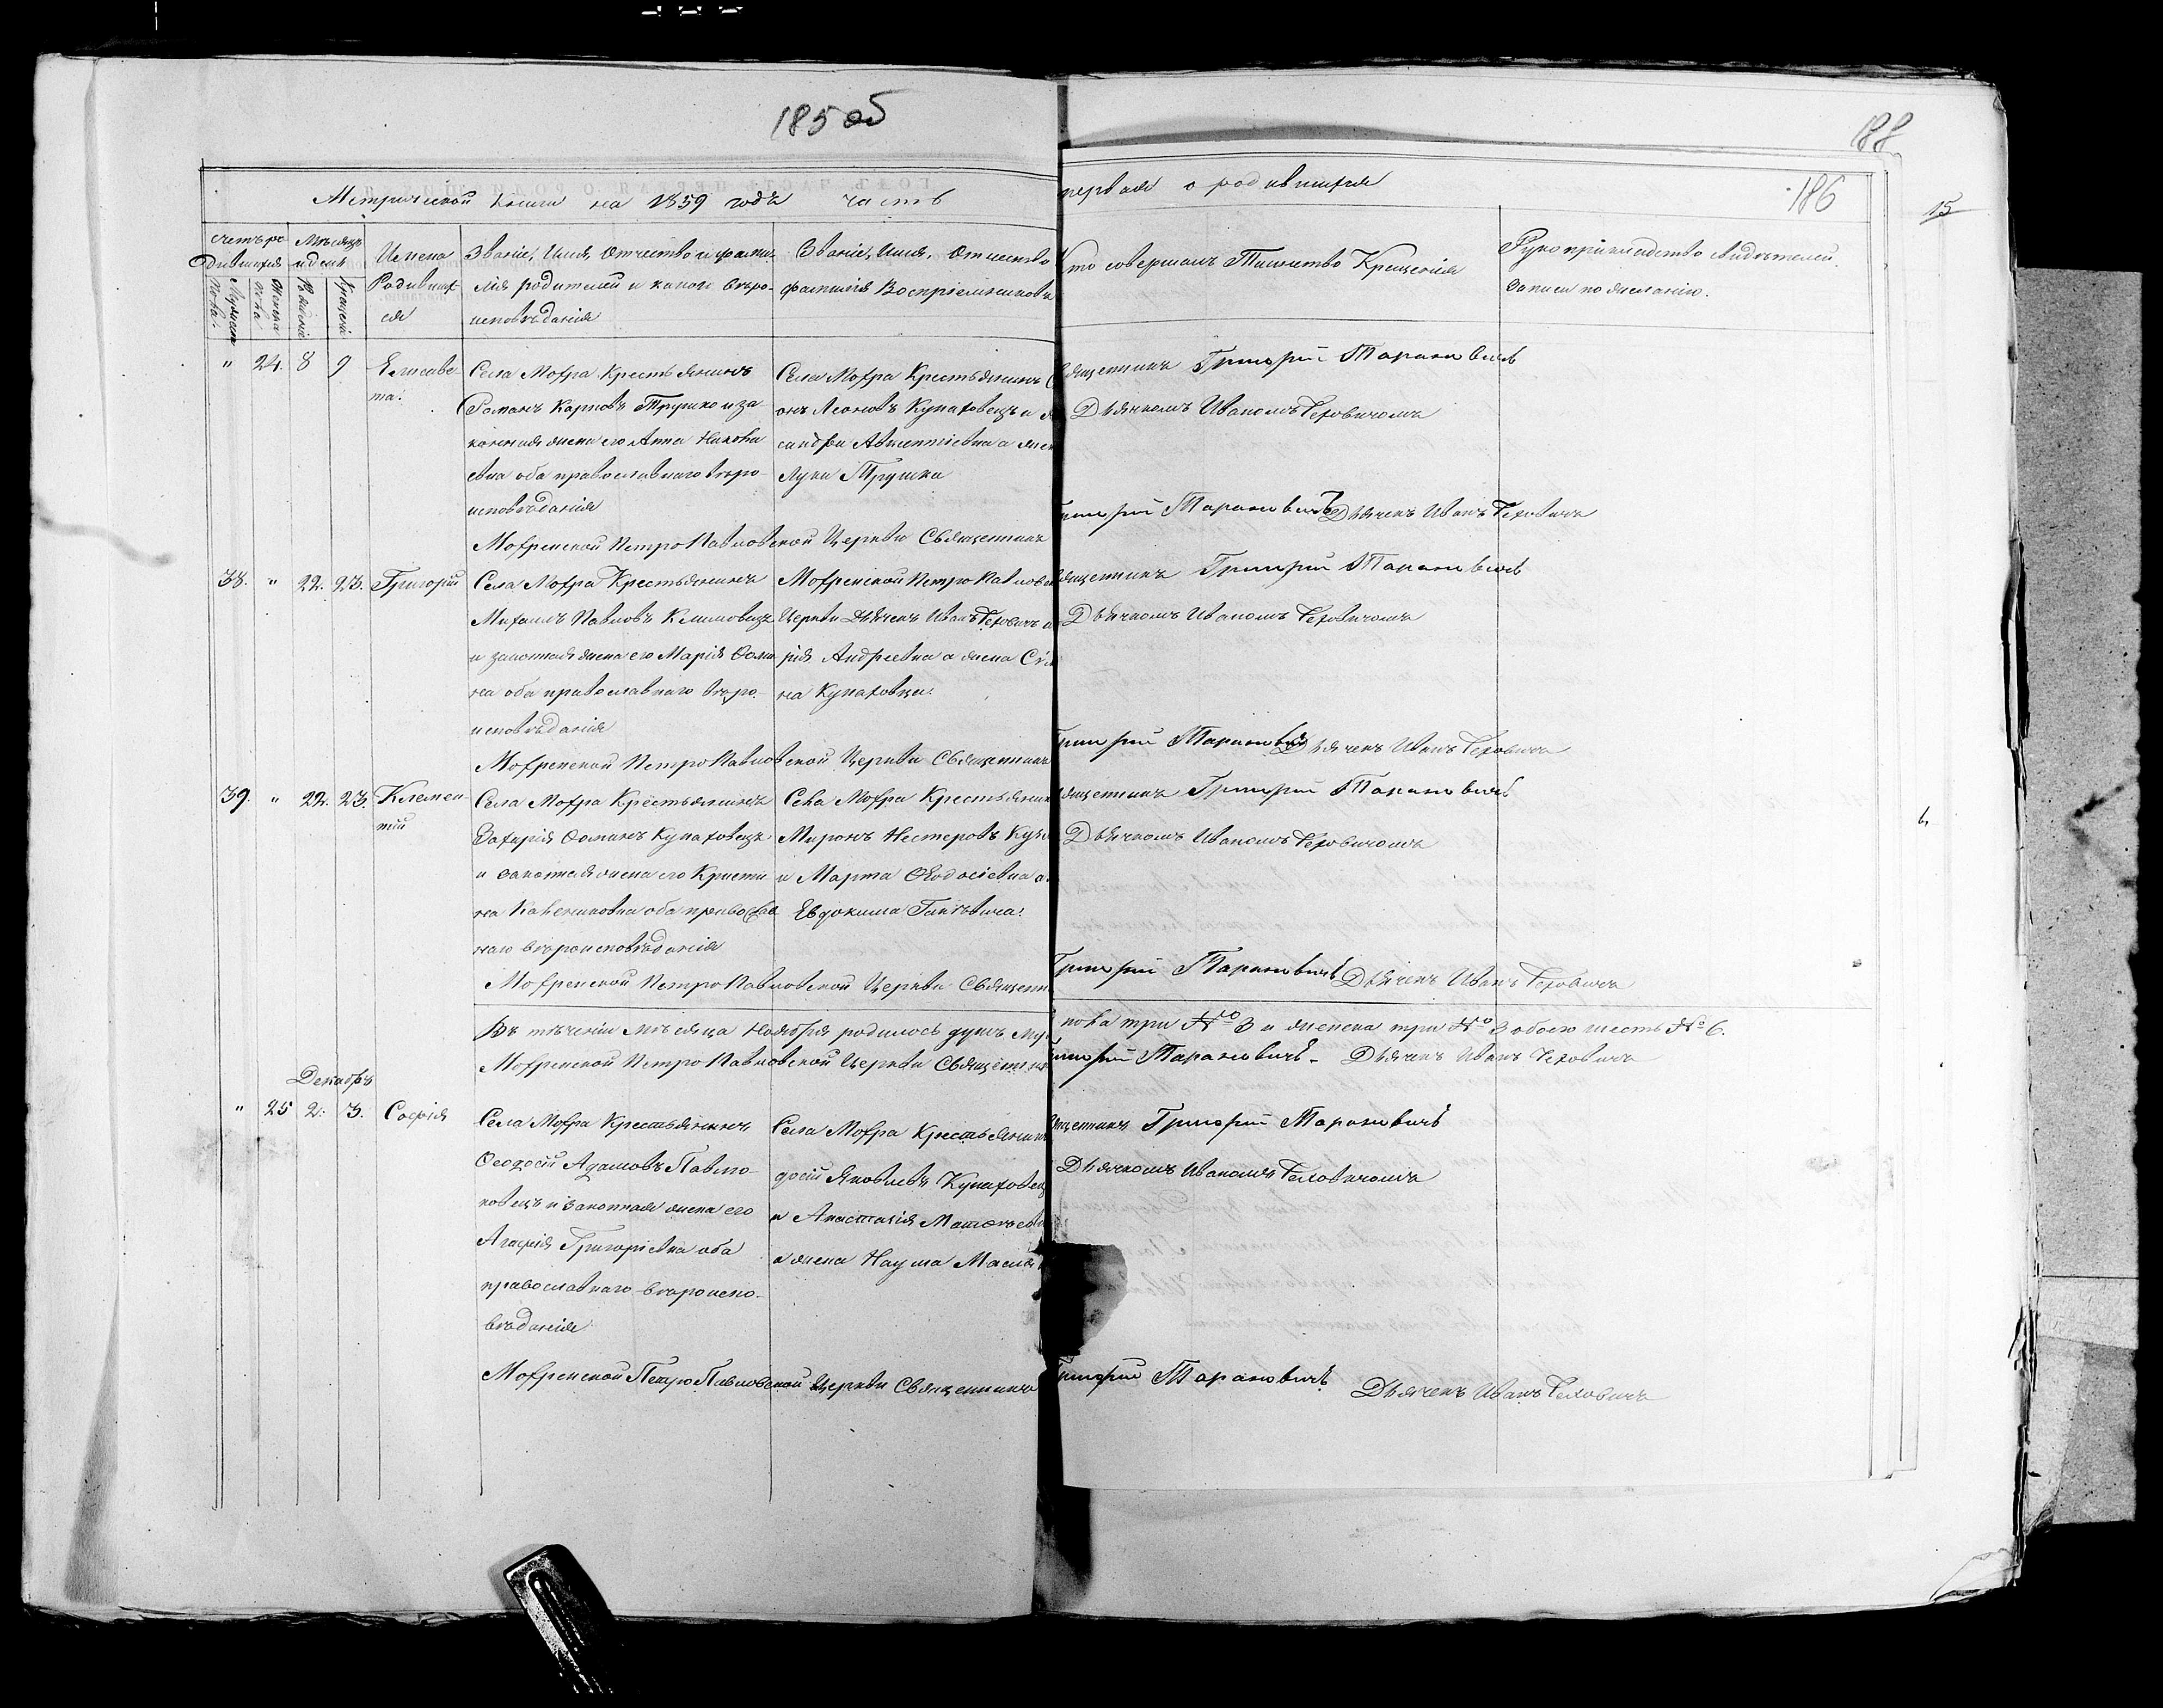 185 об
188
186
15
Метрической книги на 1859 годъ часть
первая о родившихся
Счетъ ро-
дившихся
Мѣсяцъ
и день
Имена
Родивших-
ся
Званіе, Имя, Отчество и фами-
лія родителей и какого вѣро-
исповѣданія
Званіе, Имя, Отчество
фамилія Воспріемниковъ
Кто совершалъ Таинство Крещенія
Рукоприкладство свидѣтелей
записи по желанію.
Мужеска
пола.
Женска
пола
Рожденіе
Крещеніе
" 24. 8 9
Елисаве-
та.
Села Мофра Крестьянинъ
Романъ Карповъ Трушко и за
конная жена его Анна Никола
евна оба православнаго вѣро-
исповѣданія
Села Мофра Крестьянинъ
онъ Леоновъ Кунаховецъ и
сандра Авксентіевна а жен
Луки Трушка
Григорій Тарановичъ
Дьячкомъ Иваномъ Теховичомъ
Мофренской Петро Павловской Церкви Священникъ
Григорій Тарановичъ Дьячекъ Иванъ Теховичъ
38. " 22. 23. Григорій
Села Мофра Крестьянинъ
Михаилъ Павловъ Климовецъ
и законная жена его Марія Ѳоми
на оба православнаго вѣро-
исповѣданія
Мофренской Петро Павловс
Церкви Дьячекъ Иванъ Теховичъ
рія Андреевна а жена
на Кунаховца.
Священникъ Григорій Тарановичъ
Дьячкомъ Иваномъ Теховичомъ
Мофренской Петро Павловской Церкви Священникъ
Григорій Тарановичъ Дьячекъ Иванъ Теховичъ
39. " 22. 23.
Климен-
тій
Села Мофра Крестьянинъ
Захарія Ѳоминъ Кунаховецъ
и законная жена его Кристи
на оба православ
наго вѣроисповѣданія
Села Мофра Крестьянин
Миронъ Нестеровъ
и Марта Ѳеодосіевна
Евдокима
Священникъ Григорій Тарановичъ
Дьячкомъ Иваномъ Теховичомъ
6.
Мофренской Петро Павловской Церкви Священн
Григорій Тарановичъ Дьячекъ Иванъ Теховичъ
Въ теченіи Мѣсяца Ноября родилось душъ му
пола три №о 3 и женска три №о 3 обоего шесть №о 6.
Мофренской Петро Павловской Церкви Священник
Григорій Тарановичъ. Дьячекъ Иванъ Теховичъ
Декабрь
" 25 2. 3. Софія
Села Мофра Крестьянинъ
Ѳеодосій Адамовъ Павлю-
ковецъ и законная жена его
Агафія Григоріевна оба
православнаго вѣроиспо-
вѣданія
Села Мофра Крестьянин
досій Яковлевъ Кунаховец
и Анастасія Матѳѣев
а жена Наума
Священникъ Григорій Тарановичъ
Дьячкомъ Иваномъ Теховичомъ
Мофренской Петро Павловской Церкви Священникъ
Григорій Тарановичъ Дьячекъ Иванъ Теховичъ